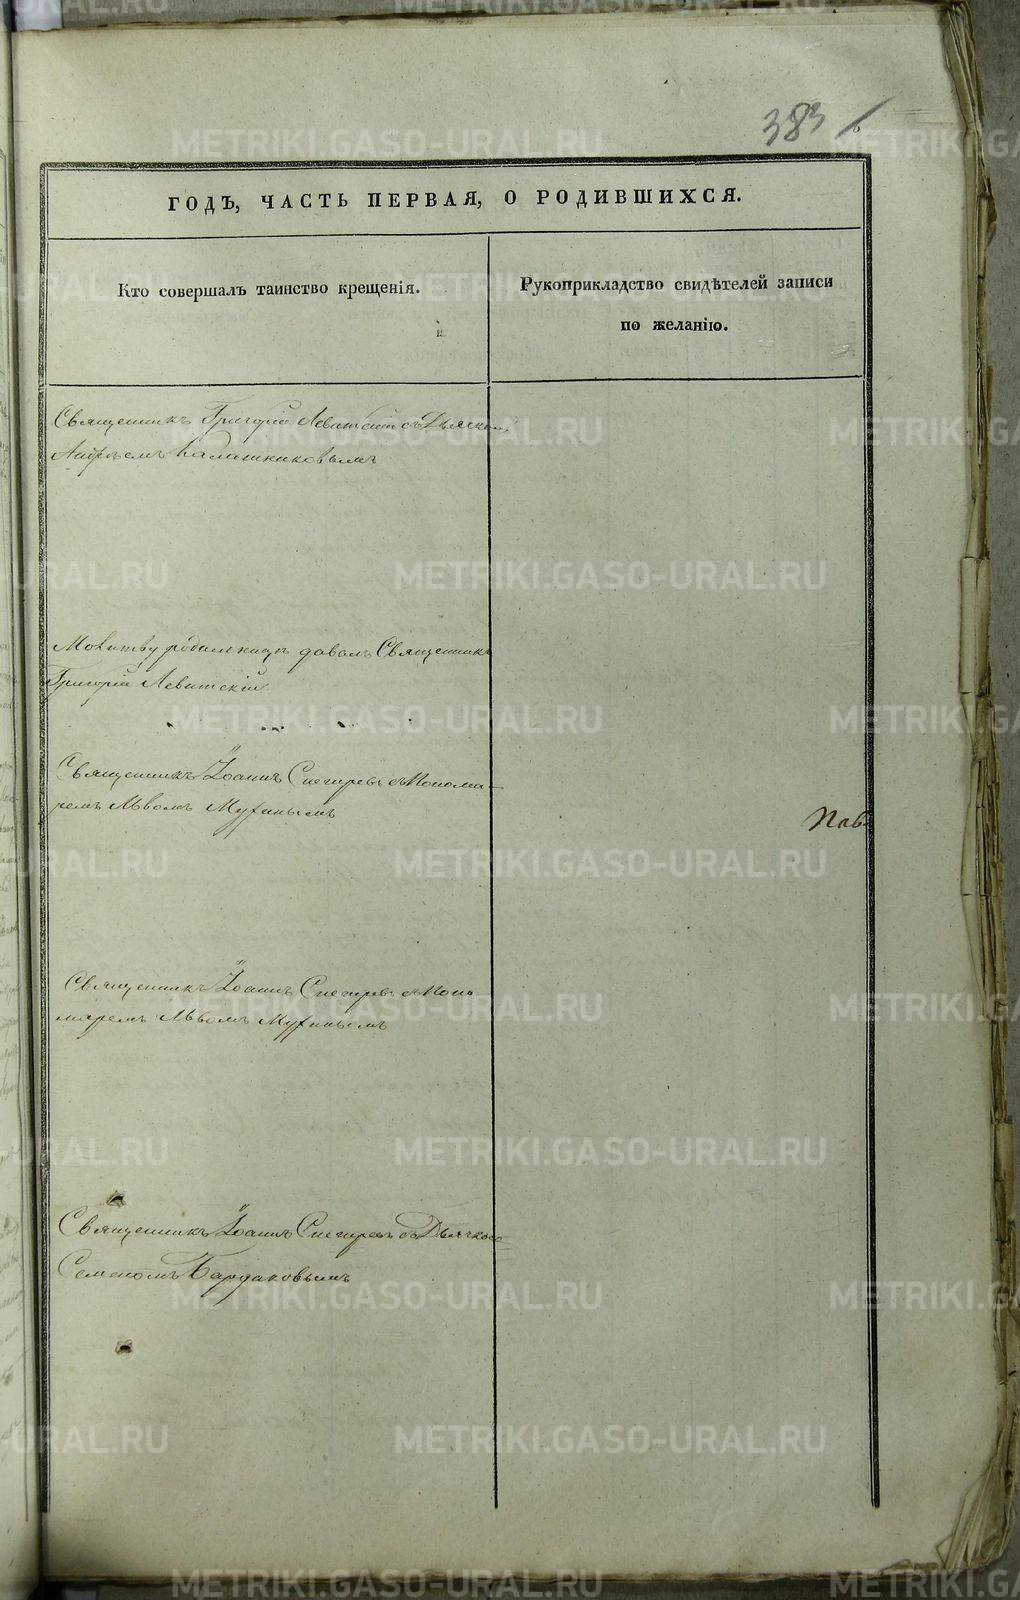 383
ГОДЪ, ЧАСТЬ ПЕРВАЯ, О РОДИВШИХСЯ.
Кто совершалъ таинство крещенія.
Рукоприкладство свидѣтелей записи
по желанію.
Священникъ Григорій Левитскій съ Дьячкомъ
Андреемъ Калашниковымъ
Молитву родильницѣ давалъ Священникъ
Григорій Левитскій
Священникъ Іоаннъ Снегиревъ съ Понома-
ремъ Львомъ Мухинымъ
Пав-
Священникъ Іоаннъ Снегиревъ съ Поно-
маремъ Львомъ Мухинымъ
Священникъ Іоаннъ Снегиревъ съ Дьячкомъ
Семеномъ Бардаковымъ
METRIKI.GASO-URAL.RU